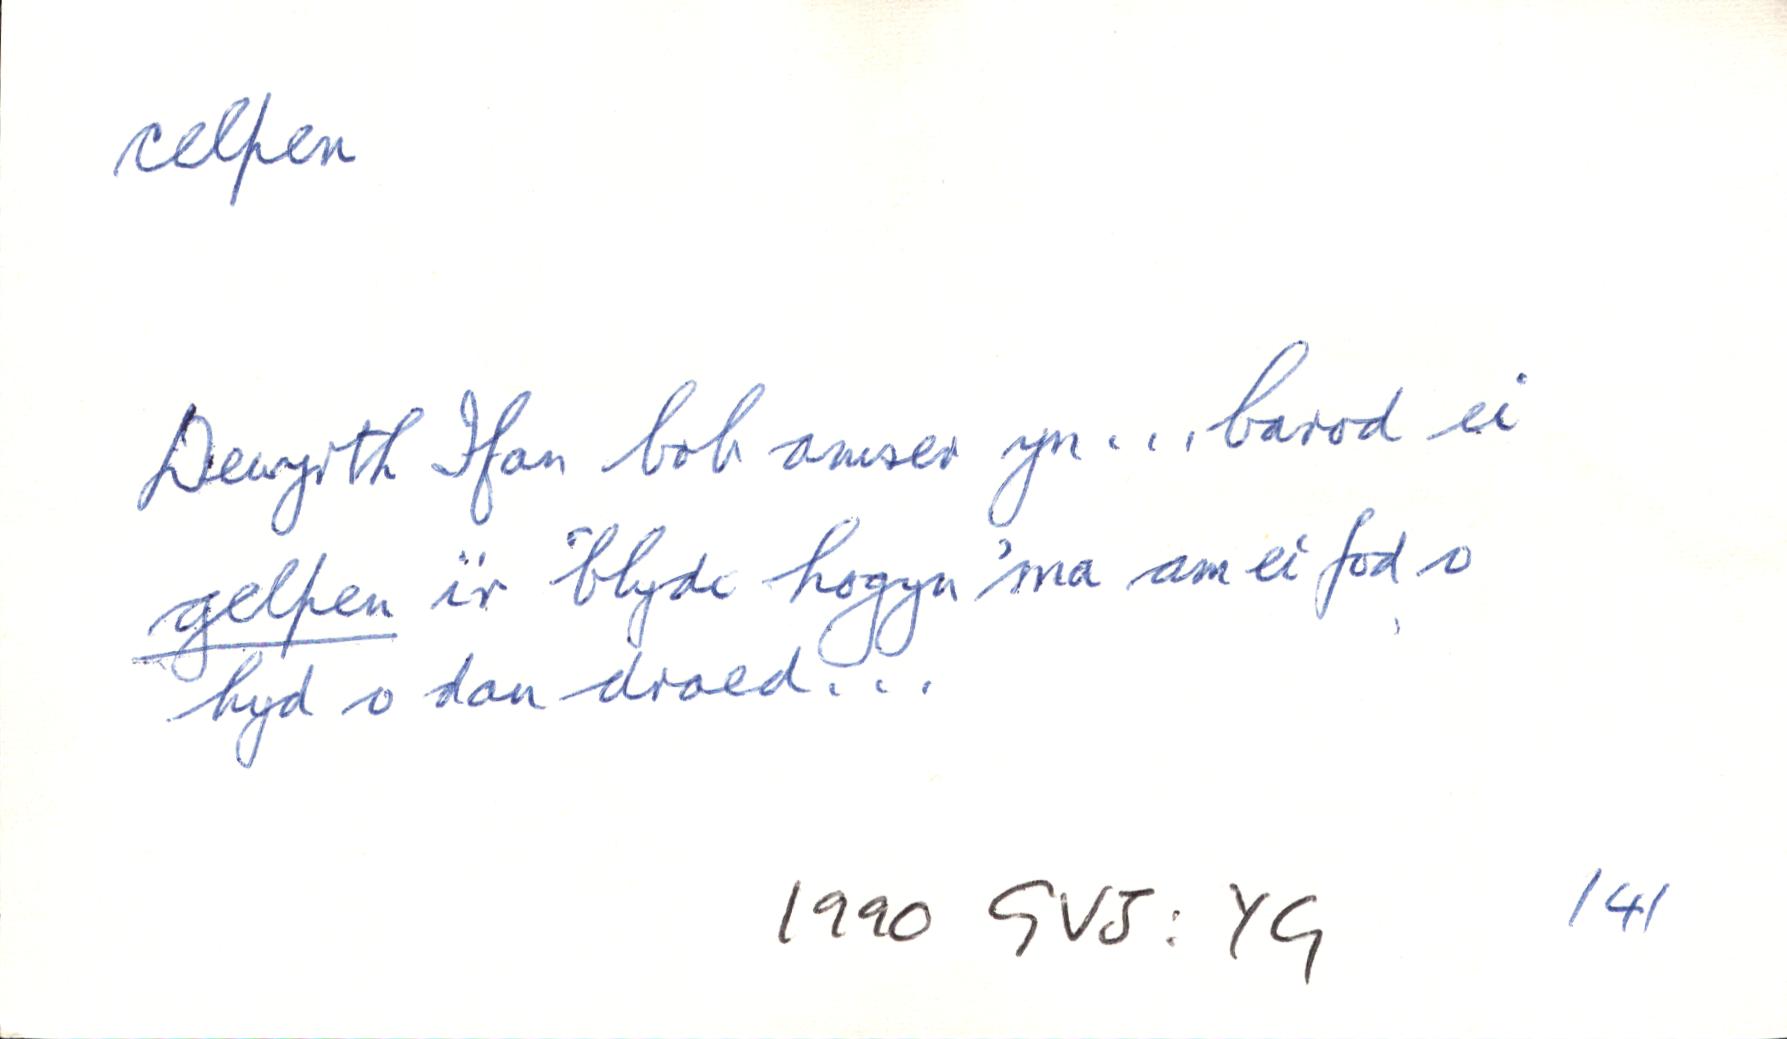 celpen
Dewyrth Ifan bob amser yn... barod ei
gelpen i'r 'blyde hogyn 'ma am ei fod o
hyd o dan draed...
1990 GVJ: YG 141